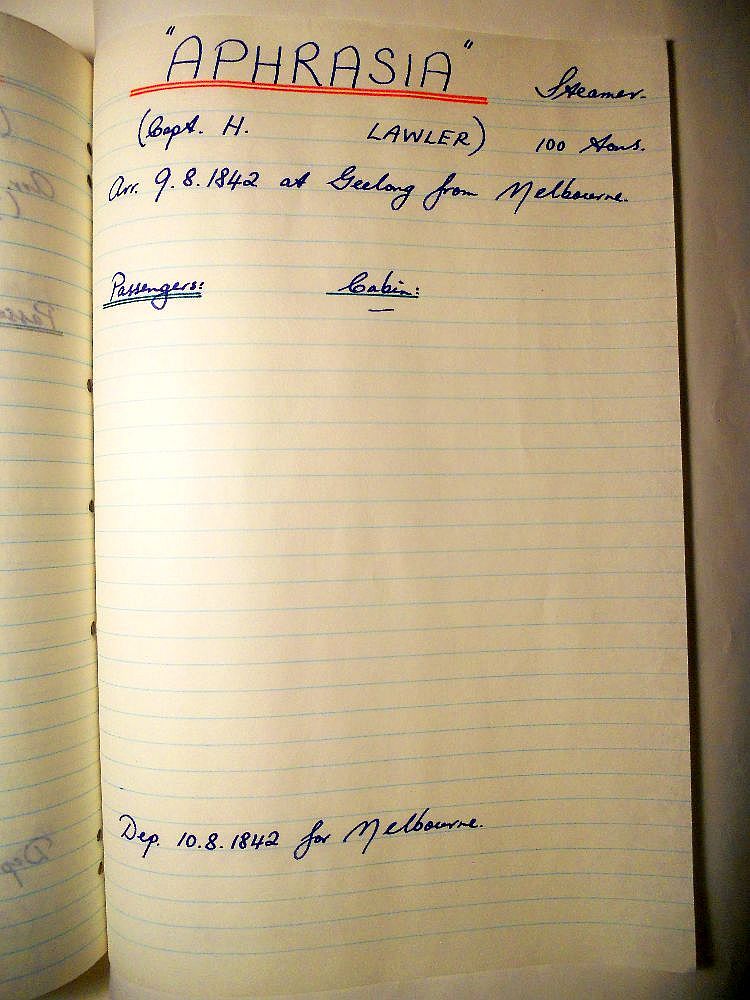 "APHRASIA" Steamer.
(Capt. H. LAWLER) 100 Tons.
Arr. 9.8.1842 at Geelong from Melbourne.
Passengers: Cabin:
—
Dep. 10.8.1842 for Melbourne.